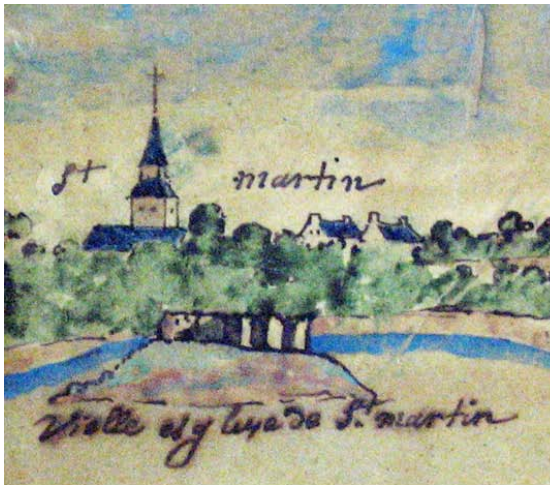 St martin
Vielle esglyse de St. martin